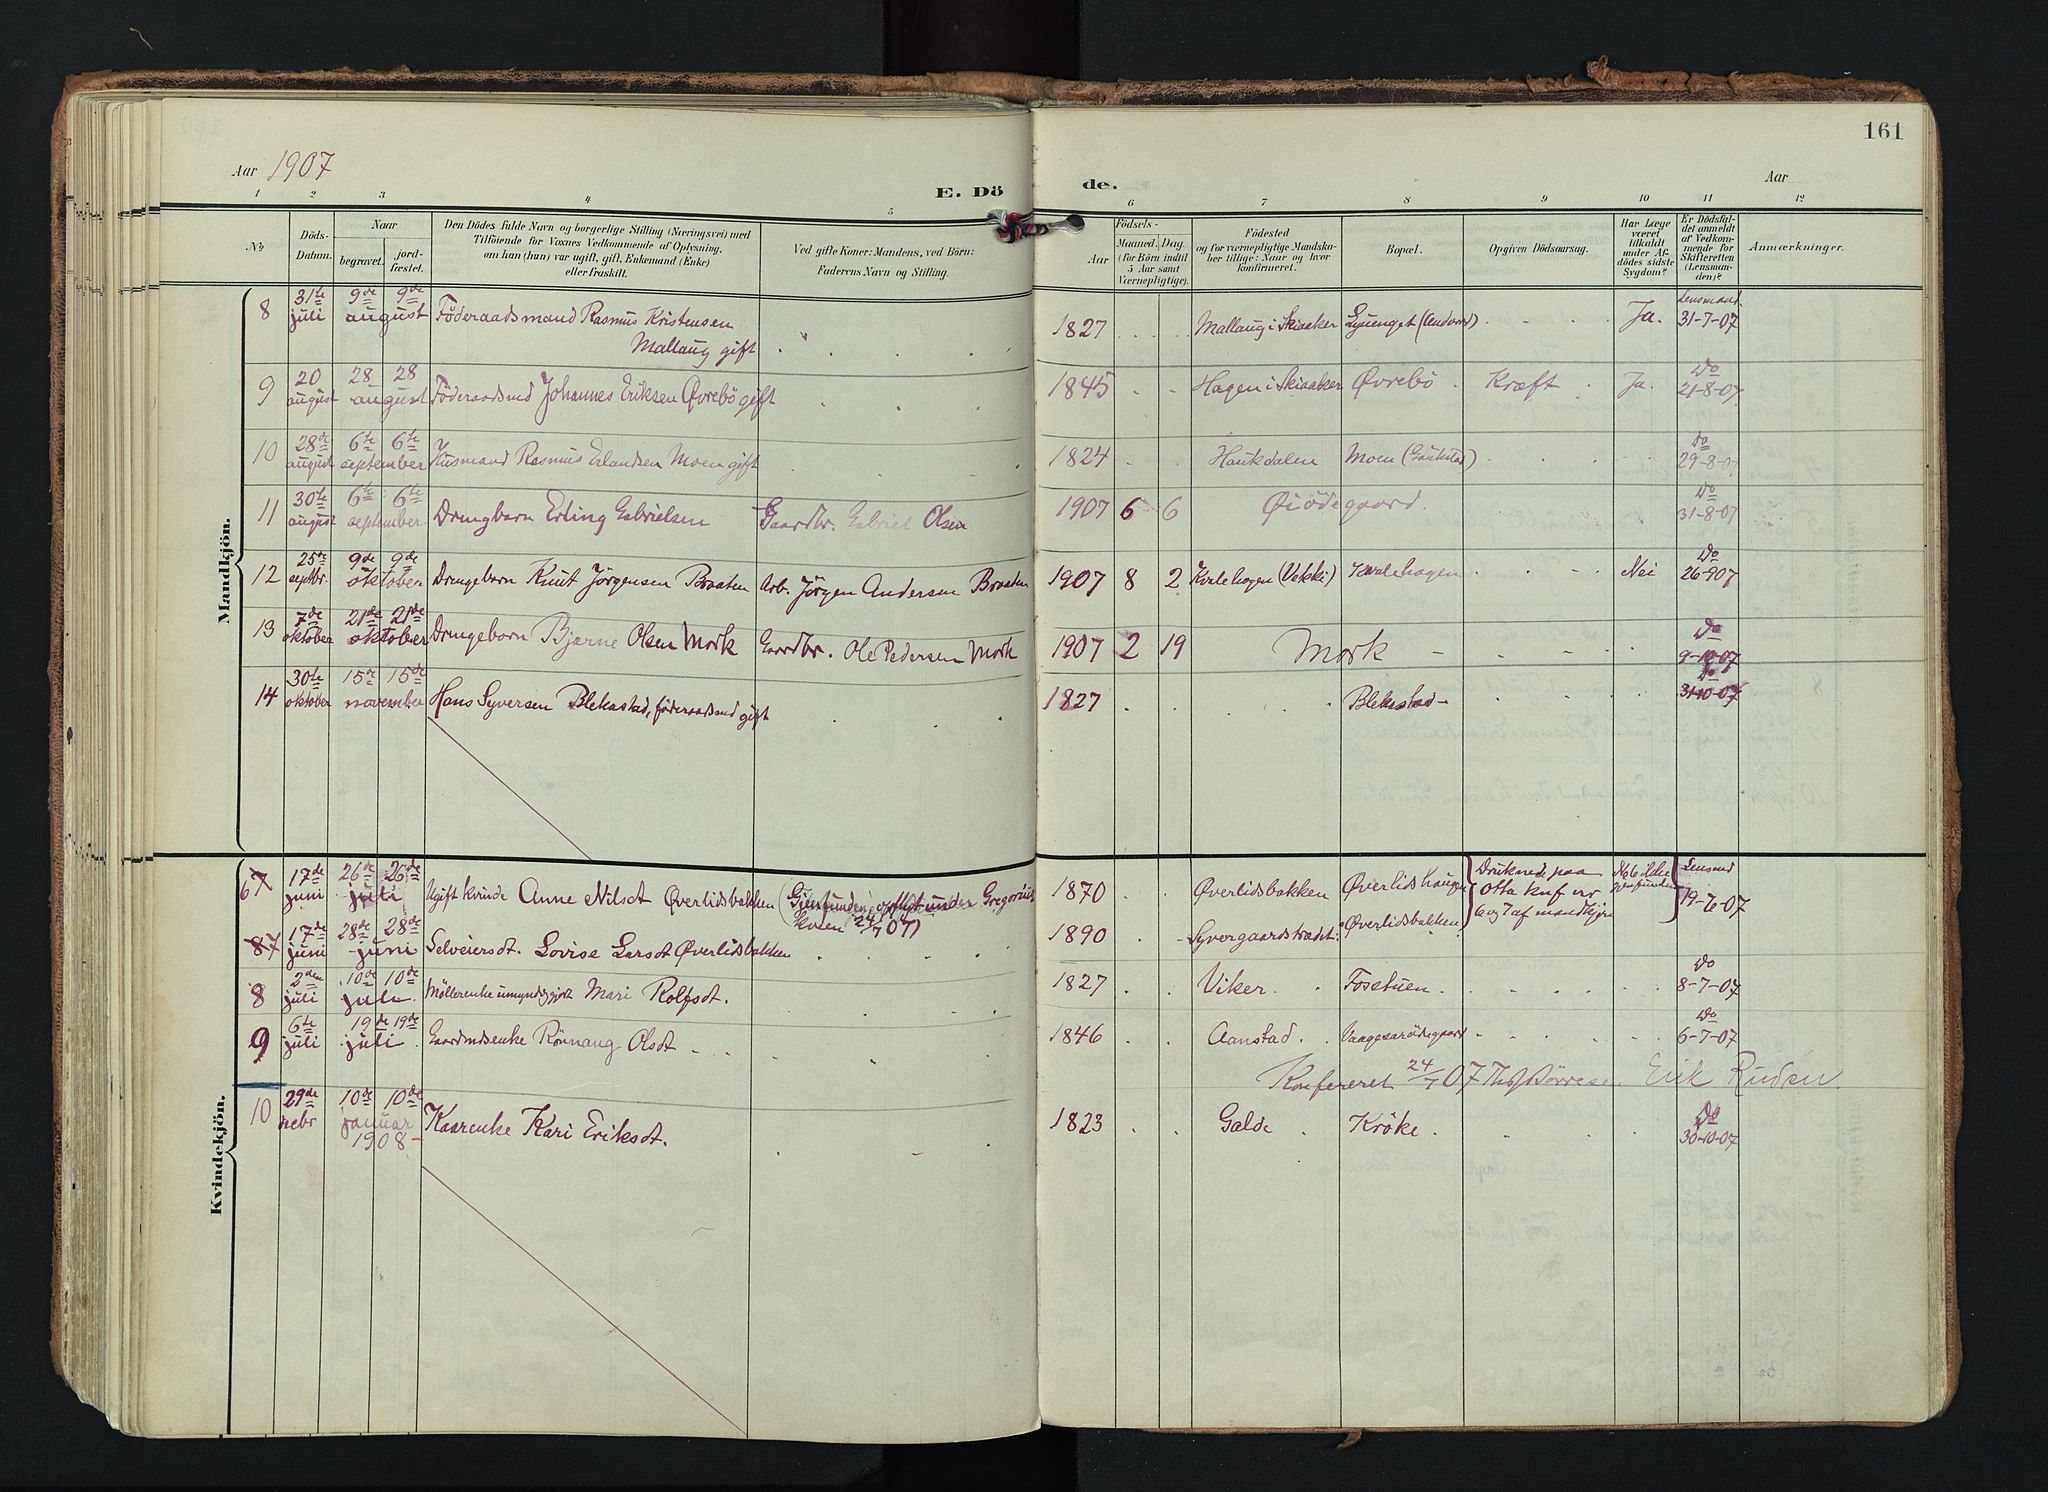 161
Aar 1907
Aar
E. Dö de.
1 2 3 4 5 6 7 8 9 10 11 12
No
Döds-Datum.
Naar
begravet.
jord-fæstet.
Den Dödes fulde Navn og borgerlige Stilling (Næringsvei) med
Tilföiende for Voxnes Vedkommende af Oplysning,
om han (hun) var ugift, gift, Enkemand (Enke)
eller fraskilt.
Ved gifte Koner: Mandens, ved Börn:
Faderens Navn og Stilling.
Födsels-
Aar
Maaned. Dag.
(for Börn indtil
5 Aar samt
Værnepligtige).
Födested
og for værnepligtige Mandska-
ber tillige: Naar og hvor
konfirmeret.
Bopæl.
Opgiven Dödsaarsag.
Har Læge
været
tilkaldt
under Af-
dödes sidste
Sygdom?
Er Dödsfal-
det anmeldt
af Vedkom-
mende for
Skifteretten
(Lensman-
den)?
Anmærkninger.
Mandkjön.
8 31te juli 9de 9de august Föderaadsmand Rasmus Kristensen Mallaug gift 1827 Mallaug i Skiaaker (Andvord) Ja. Lensmand 31-7-07
9 20 august 28 28 august Föderaadsmd Johannes Eriksen Øvrebö gift 1845 Hagen i Skiaaker Øvrebö Kræft Ja. Do 21-8-07
10 28de august 6te 6te september Husmand Rasmus Erlandsen Moen gift 1824 Haukdalen Moen (Gaukstad) Do 29-8-07
11 30te august 6te 6te september Drengbarn Erling Gabrielsen Gaardbr. Gabriel Olsen 1907 6 6 Øiödegaard Do 31-8-07
12 25de septbr. 9de 9de oktober Drengebarn Knut Jörgensen Braaten Arb. Jörgen Andersen Braaten 1907 8 2 Kvalehagen (Vekki) Kvalehagen Nei Do 26-9-07
13 7de oktober 21de 21de oktober Drengebarn Bjarne Olsen Mork Gaardbr. Ole Pedersen Mork 1907 2 19 Mork Do 9-10-07
14 30te oktober 15de 15de november Hans Syversen Blekastad, föderaadsmd gift 1827 Blekastad Do 31-10-07
Kvindekjön.
67 17de juni 26de 26de juli Ugift kvinde Anne Nilsdt Øverlidsbakken (Gjenfunden, opfligt under Gregorius Skaren 24/7 07) 1870 Øverlidsbakken Øverlidshaugen Druknede paa Otta knf nr 6 og 7 af mandkjön No 6 ikke gjenfunden Lensmd 19-6-07
87 17de juni 28de 28de juni Selveiersdt. Lovise Larsdt Øverlidsbakken 1890 Syvergaardstrædet Øverlidsbakken
8 2den juli 10de 10de juli Møllerenke umyndiggjort Mari Rolfsdt. 1827 Viker. Fosstuen Do 8-7-07
9 6te juli 19de 19de juli Gaardmdsenke Rönnaug Olsdt 1846 Aanstad Vaagesarödegaard Do 6-7-07
Konfereret 24/7 07 Børresen Erik Ruden
10 29de debr 10de 10de januar 1908 Kaarenke Kari Eriksdt. 1823 Galde Kröke. Do 30-10-07